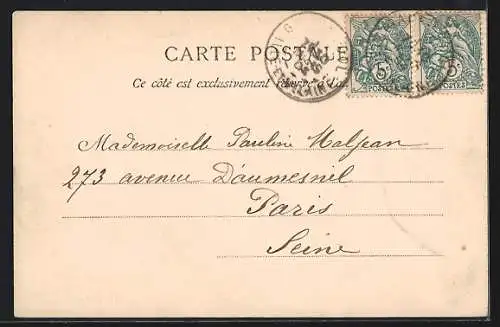 CARTE POSTALE
Ce côté est exclusivement réservé
5 5
POSTES POSTES
Mademoiselle Pauline Maljean
273 avenue Daumesnil
Paris
Seine